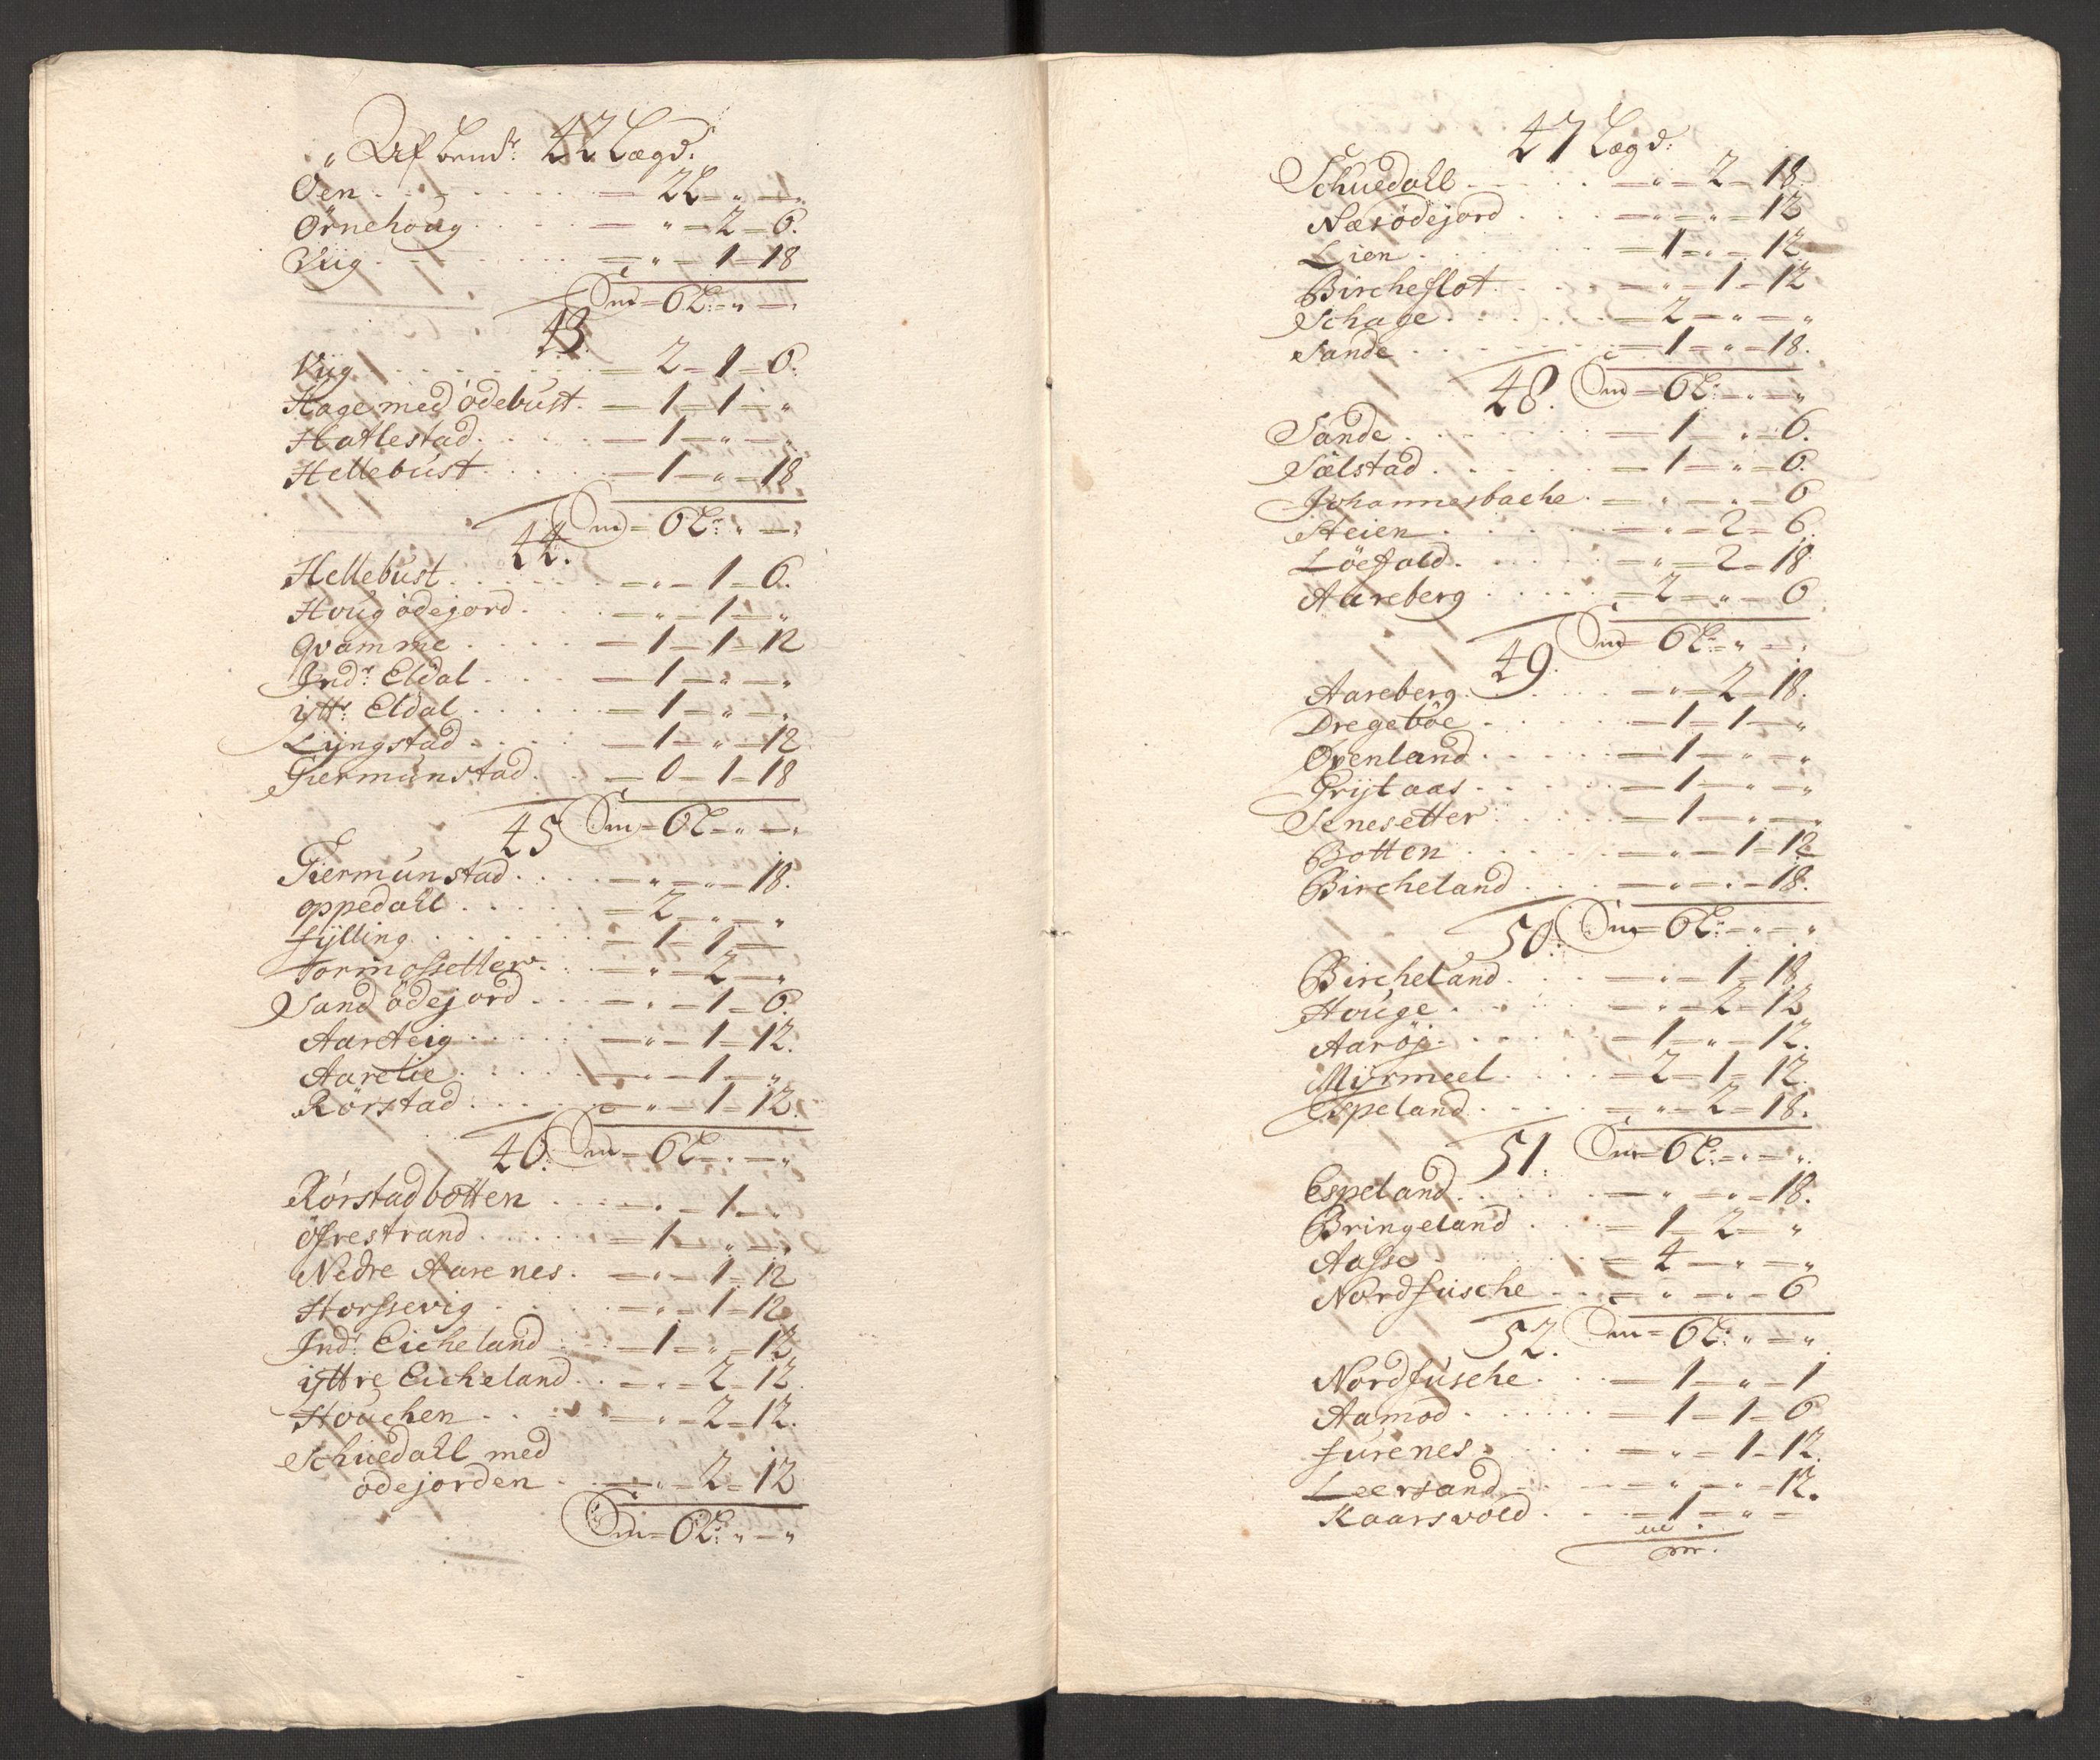 „ Af bemdt: 42 Lægd:
Øen . . . . . = 2L - „ - „
Örnehoug . . . . — „ - 2 - 6.
Viig . . . . . = „ - 1 - 18
Sm = 6L: - „ - „
43.
Viig . . . . . = 2 - 1 - 6.
Hage med ödebust. — 1 - 1 - „
Hatlestad. . . . — 1 - „ - „
Hellebust . . . . — 1 - „ - 18
Sm = 6L: „ - „
44.
Hellebust . . . . — „ - 1 - 6.
Houg ödejord . . . — „ - 1 - „
Qvamme . . . . — 1 - 1 - 12
Indr: Eldal . . . — 1 - „ - „
ijttr: Eldal . . . — 1 - „ - „
Lijngstad . . . . — 1 - „ - 12
Giermunstad . . . — 0 - 1 - 18
Sm = 6L - „ - „
45
Giermunstad . . . — „ - „ - 18.
oppedall . . . . — 2 - „ - „
fijlling . . . . — 1 - 1 -
Tormossetter . . . — „ - 2 - „
Sand ödejord . . . — „ - 1 - 6.
Aarsteig . . . . — „ - 1 - 12.
Aarelie . . . . — „ - 1 - „
Rörstad . . . . — „ - 1 - 12.
Sm = 6L - „ - „
46:
Rörstadbotten . . . — „ - 1 - „
öfrestrand . . . . — 1 - „ - „
Nedre Aarenes . . — „ - 1 - 12
Horssevig . . . . — „ - 1 - 12
Indr: Eicheland . . — 1 - „ - 12
ijttre Eicheland . . — „ - 2 - 12.
Houchen . . . . — „ - 2 - 12.
Schuedall med
ödejorden . . — „ - 2 - 12
Sm = 6L: „ - „
47 Lægd:
Schuedall . . . . — „ - 2 - 18.
Næsödejord . . . — „ - „ - 12
Lien . . . . . — 1 - „ - 12.
Bircheflot . . . . — „ - 1 - 12
Schage . . . . — 2 - „ - „
Sande . . . . — 1 - „ - 18.
Sm = 6L: - „ - „
48.
Sande . . . . — 1 - „ - 6.
Sælstad . . . . — 1 - „ - 6.
Johannesbache . — „ - „ - 6
Heien . . . . — „ - 2 - 6.
Löefald . . . . — „ - 2 - 18.
Aareberg . . . . — 2 - „ - 6
Sm = 6L: - „ - „
49.
Aareberg . . . . — „ - 2 - 18.
Dregeböe . . . . — 1 - 1 - „
Øvenland . . . . — 1 - „ - „
Grijtaas . . . . — 1 - „ - „
Senesetter . . . . — 1 - „ - „
Botten . . . . — „ - 1 - 12
Bircheland . . . — „ - „ - 18.
Sm = 6L: - „ - „
50:
Bircheland . . . — „ - 1 - 18
Houge . . . . — „ - 2 - 12
Aaröj . . . . — 1 - „ - 12.
Mijrmeel . . . . — 2 - 1 - 12.
Espeland . . . . — „ - 2 - 18.
Sm = 6L: - „ - „
51:
Espeland . . . . — „ - „ - 18.
Bringeland . . . — 1 - 2 - „
Aasse . . . . — 4 - „ - „
Nordfusche . . . — „ - „ - 6
Sm = 6L: „ - „
52.
Nordfusche . . . — 1 - „ - 1
Aamod . . . . — 1 - 1 - 6
furenes . . . . — „ - 1 - 12.
Leersand . . . . — „ - „ - 12.
Kaarsvold . . . — 1 - „ -